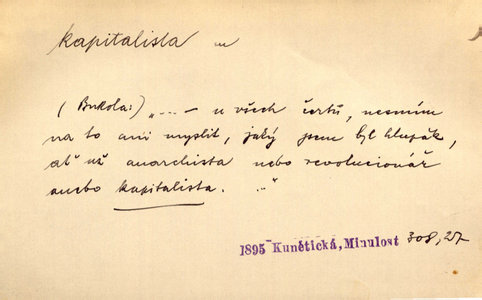 kapitalista m
(Bukola:) „... – u všech čertů, nesmím
na to ani myslit, jaký jsem byl hlupák,
ať už anarchista nebo revolucionář
anebo kapitalista. ..“
1895 Kunětická, Minulost 308, 27